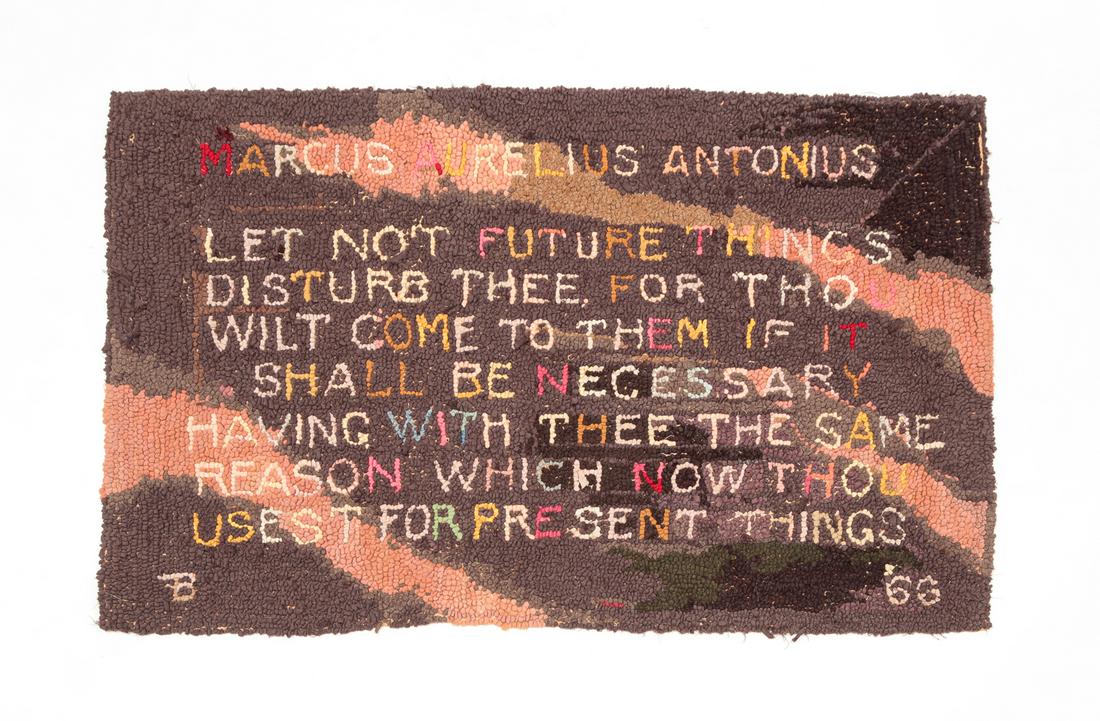 MARCUS AURELIUS ANTONIUS
LET NO'T FUTURE THINGS
DISTURB THEE. FOR THOU
WILT COME TO THEM IF IT
SHALL BE NECESSARY
HAVING WITH THEE THE SAME
REASON WHICH NOW THOU
USEST FOR PRESENT THINGS
TB '66